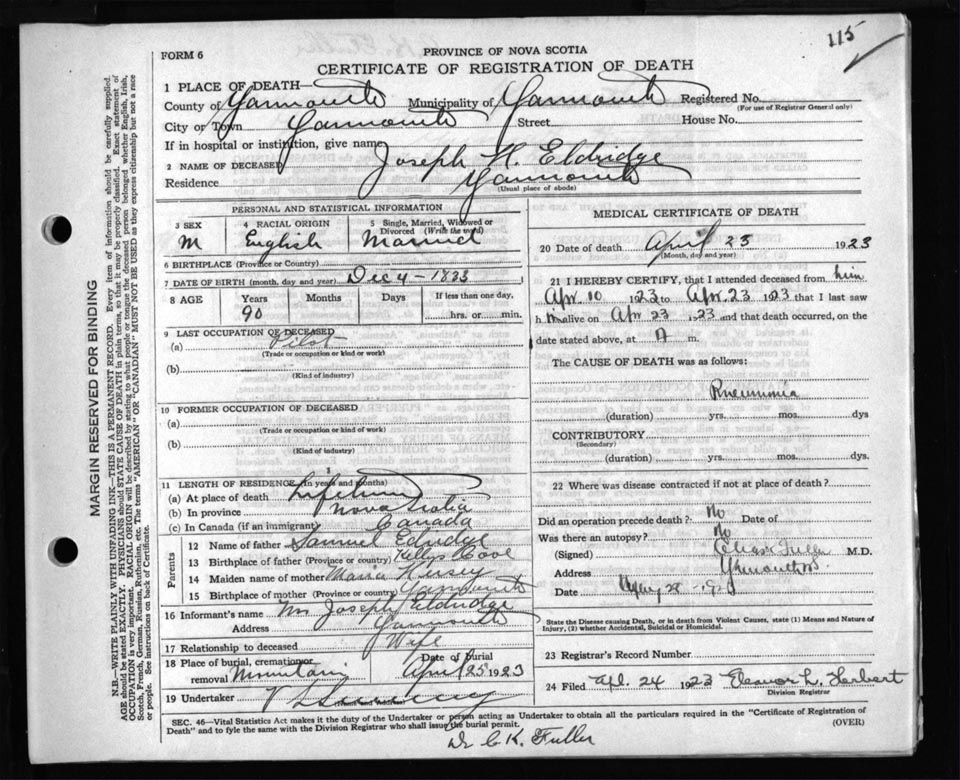 115
FORM 6
PROVINCE OF NOVA SCOTIA
CERTIFICATE OF REGISTRATION OF DEATH
1 PLACE OF DEATH—
County of Yarmouth Municipality of Yarmouth Registered No.
(For use of Registrar General only)
City or Town Yarmouth Street House No.
If in hospital or institution, give name
2 NAME OF DECEASED Joseph H. Eldridge
Residence Yarmouth
(Usual place of abode)
PERSONAL AND STATISTICAL INFORMATION
3 SEX 4 RACIAL ORIGIN 5 Single, Married, Widowed or Divorced (Write the word)
M English Married
6 BIRTHPLACE (Province or Country)
7 DATE OF BIRTH (month, day and year) Dec 4 - 1833
8 AGE Years Months Days If less than one day,
90 hrs. or min.
9 LAST OCCUPATION OF DECEASED
(a) Pilot
(Trade or occupation or kind or work)
(b)
(Kind of industry)
10 FORMER OCCUPATION OF DECEASED
(a)
(Trade or occupation or kind of work)
(b)
(Kind of industry)
11 LENGTH OF RESIDENCE (in years and months)
(a) At place of death Lifetime
(b) In province Nova Scotia
(c) In Canada (if an immigrant) Canada
Parents
12 Name of father Samuel Eldridge
13 Birthplace of father (Province or country) Kellys Cove
14 Maiden name of mother Maria
15 Birthplace of mother (Province or country) Yarmouth
16 Informant's name Mrs Joseph Eldridge
Address Yarmouth
17 Relationship to deceased Wife
18 Place of burial, cremation or removal Mountain Date of burial April 25 1923
19 Undertaker
MEDICAL CERTIFICATE OF DEATH
20 Date of death April 23 1923
(Month, day and year)
21 I HEREBY CERTIFY, that I attended deceased from him
Apr 10 1923 to Apr. 23 1923 that I last saw
him alive on Apr 23 1923 and that death occurred, on
date stated above, at A m.
The CAUSE OF DEATH was as follows:
Pneumonia
(duration) yrs. mos. dys
CONTRIBUTORY
(Secondary)
(duration) yrs. mos. dys.
22 Where was disease contracted if not at place of death?
Did an operation precede death? No Date of
Was there an autopsy? No
(Signed) Fuller M.D.
Address Yarmouth
Date
State the Disease causing Death, or in death from Violent Causes, state (1) Means and Nature of
Injury, (2) whether Accidental, Suicidal or Homicidal.
23 Registrar's Record Number
24 Filed Apl. 24 1923 Eleanor L. Herbert
Division Registrar
SEC. 46—Vital Statistics Act makes it the duty of the Undertaker or person acting as Undertaker to obtain all the particulars required in the "Certificate of Registration of
Death" and to fyle the same with the Division Registrar who shall issue the burial permit. (OVER)
Dr C. K. Fuller
MARGIN RESERVED FOR BINDING
N.B.—WRITE PLAINLY WITH UNFADING INK—THIS IS A PERMANENT RECORD. Every item of information should be carefully supplied.
AGE should be stated EXACTLY. PHYSICIANS should STATE CAUSE OF DEATH in plain terms, so that it may be properly classified. Exact statement of
OCCUPATION is very important. RACIAL ORIGIN will be described by stating to what people or tongue the deceased person belonged whether English, Irish,
Scotch, French, German, Russian, Ruthenian, etc. The terms "AMERICAN" OR "CANADIAN" MUST NOT BE USED as they express citizenship but not a race
or people. See instructions on back of Certificate.